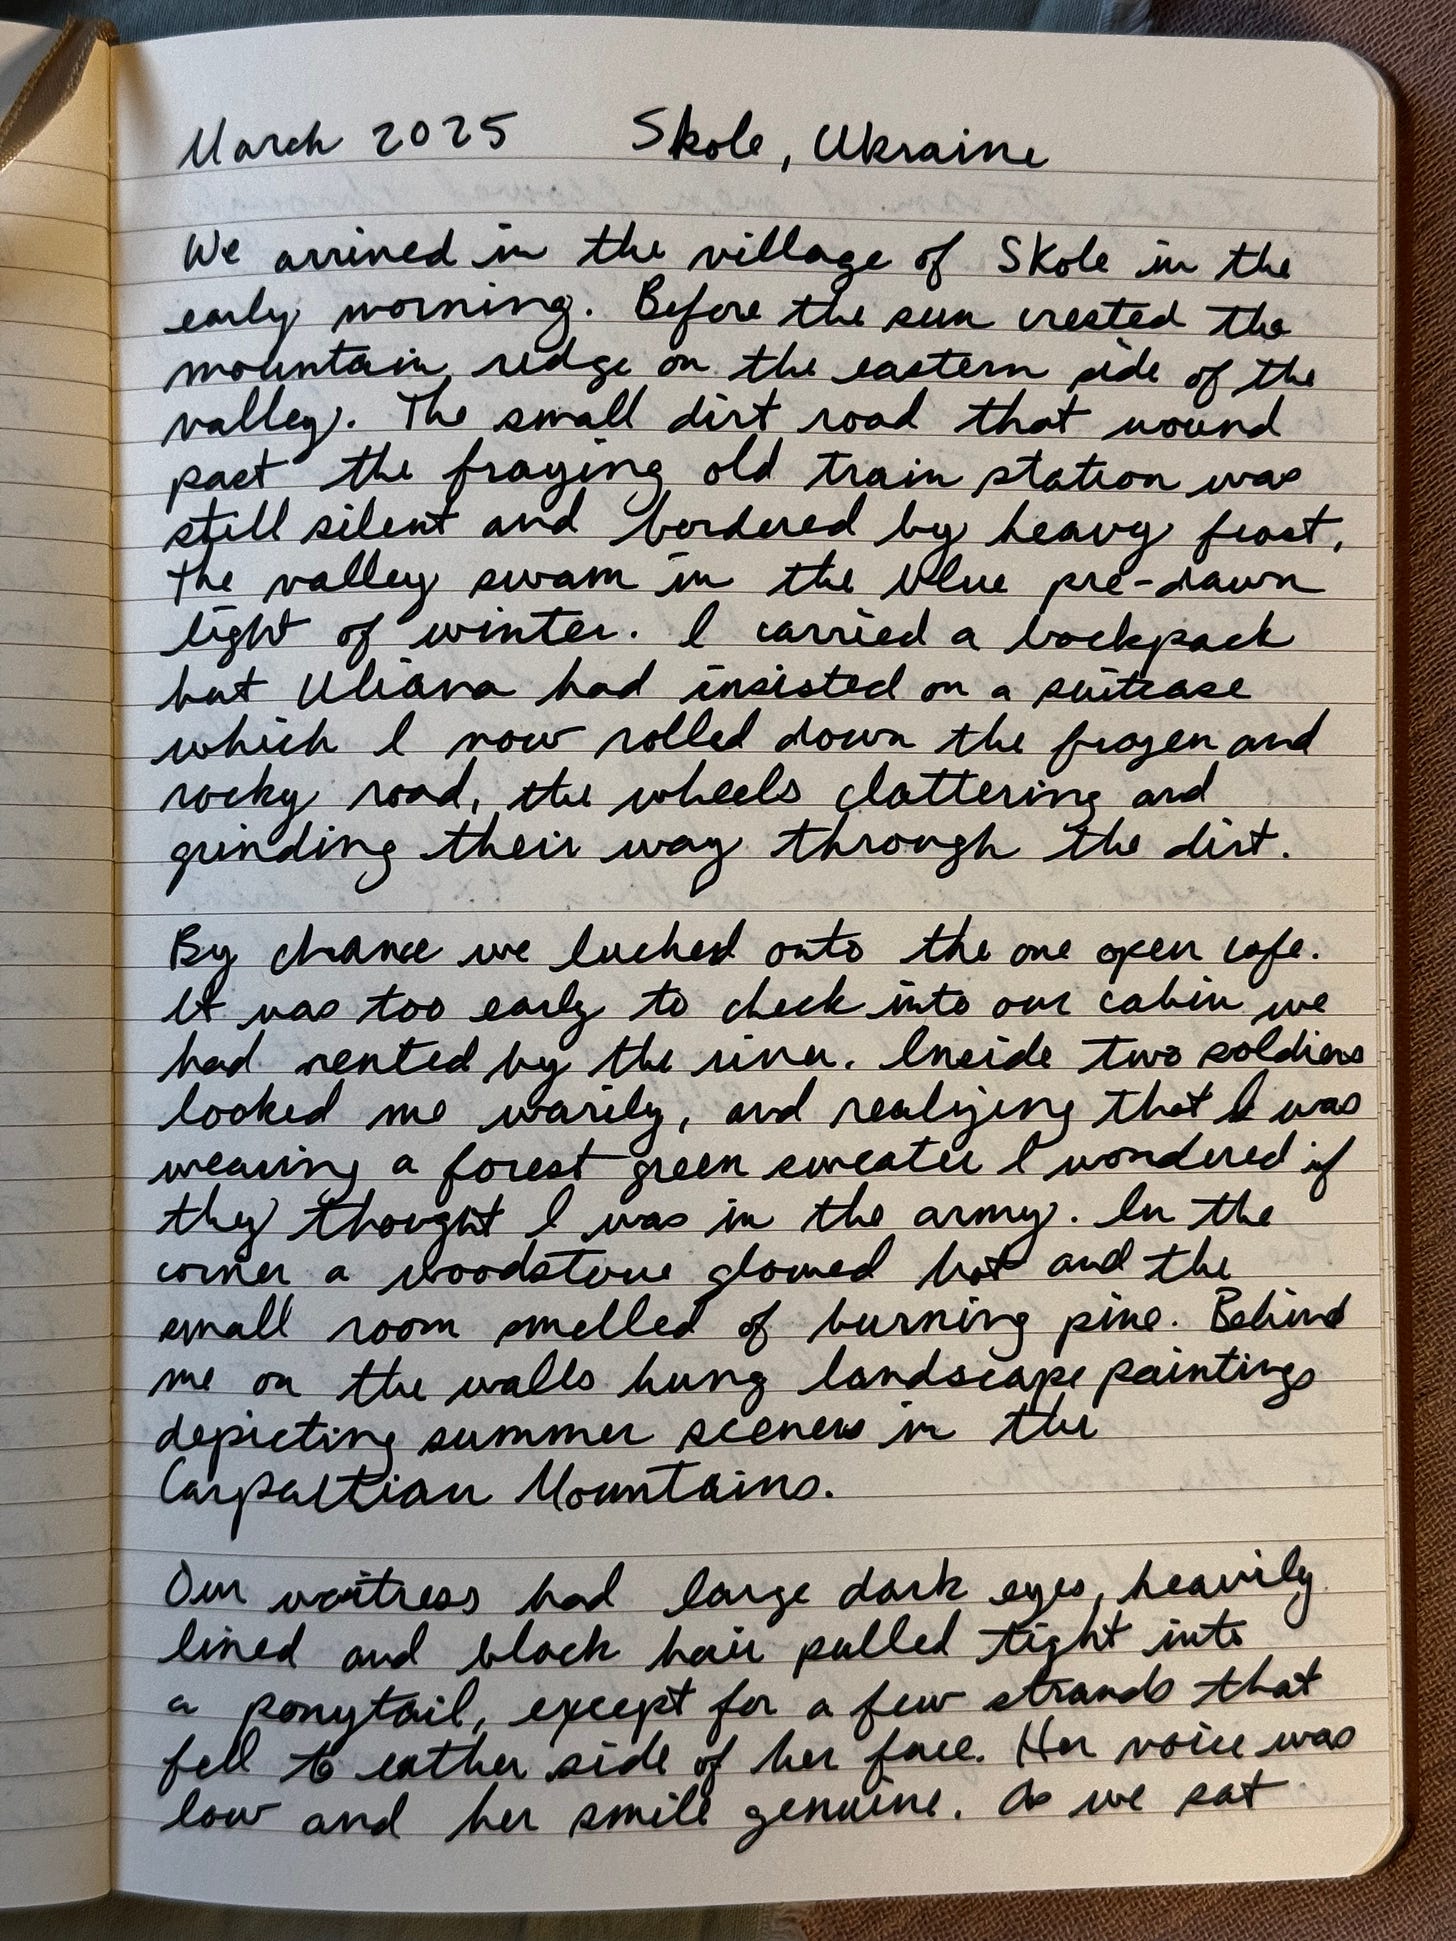 March 2025 Skole, Ukraine
We arrived in the village of Skole in the
early morning. Before the sun crested the
mountain ridge on the eastern side of the
valley. The small dirt road that wound
past the fraying old train station was
still silent and bordered by heavy frost,
the valley swam in the blue pre-dawn
light of winter. I carried a backpack
but Uliana had insisted on a suitcase
which I now rolled down the frozen and
rocky road, the wheels clattering and
grinding their way through the dirt.
By chance we lucked onto the one open cafe.
It was too early to check into our cabin we
had rented by the river. Inside two soldiers
looked me warily, and realizing that I was
wearing a forest green sweater I wondered if
they thought I was in the army. In the
corner a woodstove glowed hot and the
small room smelled of burning pine. Behind
me on the walls hung landscape paintings
depicting summer scenes in the
Carpathian Mountains.
Our waitress had large dark eyes, heavily
lined and black hair pulled tight into
a ponytail, except for a few strands that
fell to eather side of her face. Her voice was
low and her smile genuine. As we sat